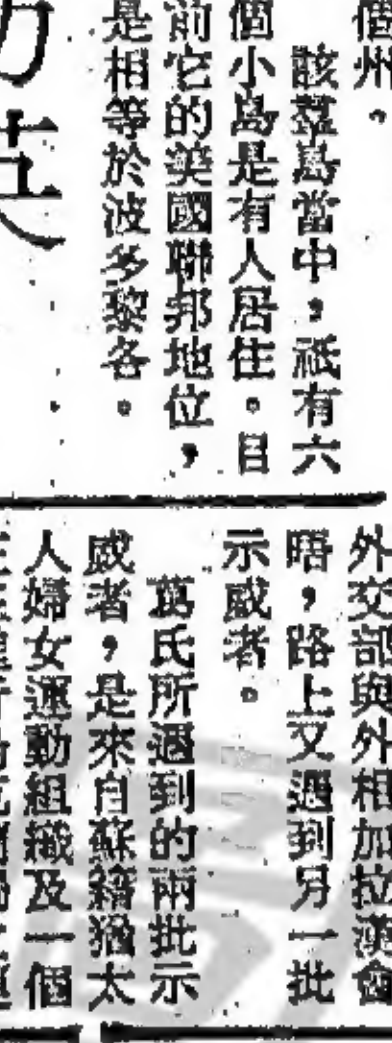 個州。
該羣島當中，祇有六
個小島是有人居住。目
前它的美國聯邦地位，
是相等於波多黎各。
外交部與外相加拉漢會
晤，路上又遇到另一批
示威者。
萬氏所遇到的兩批示
威者，是來自蘇籍猶太
人婦女運動組織及一個